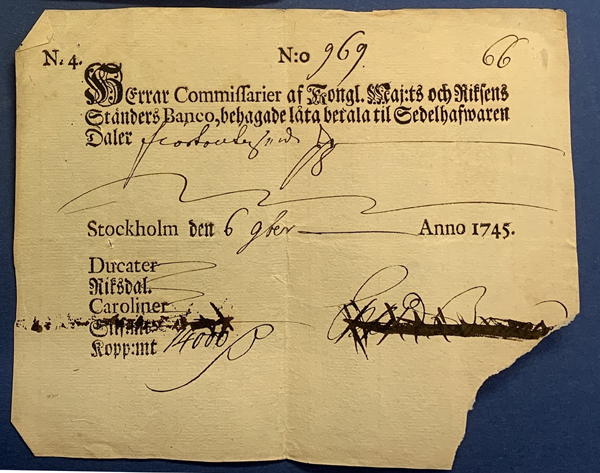 N. 4. N:o 969. 66
HErrar Commissarier af Kongl. Maj:ts och Riksens
Ständers Banco, behagade låta betala til Sedelhafwaren
Daler
Stockholm den 6 9ber Anno 1745.
Ducater
Riksdal.
Caroliner
Kopp:mt 14000